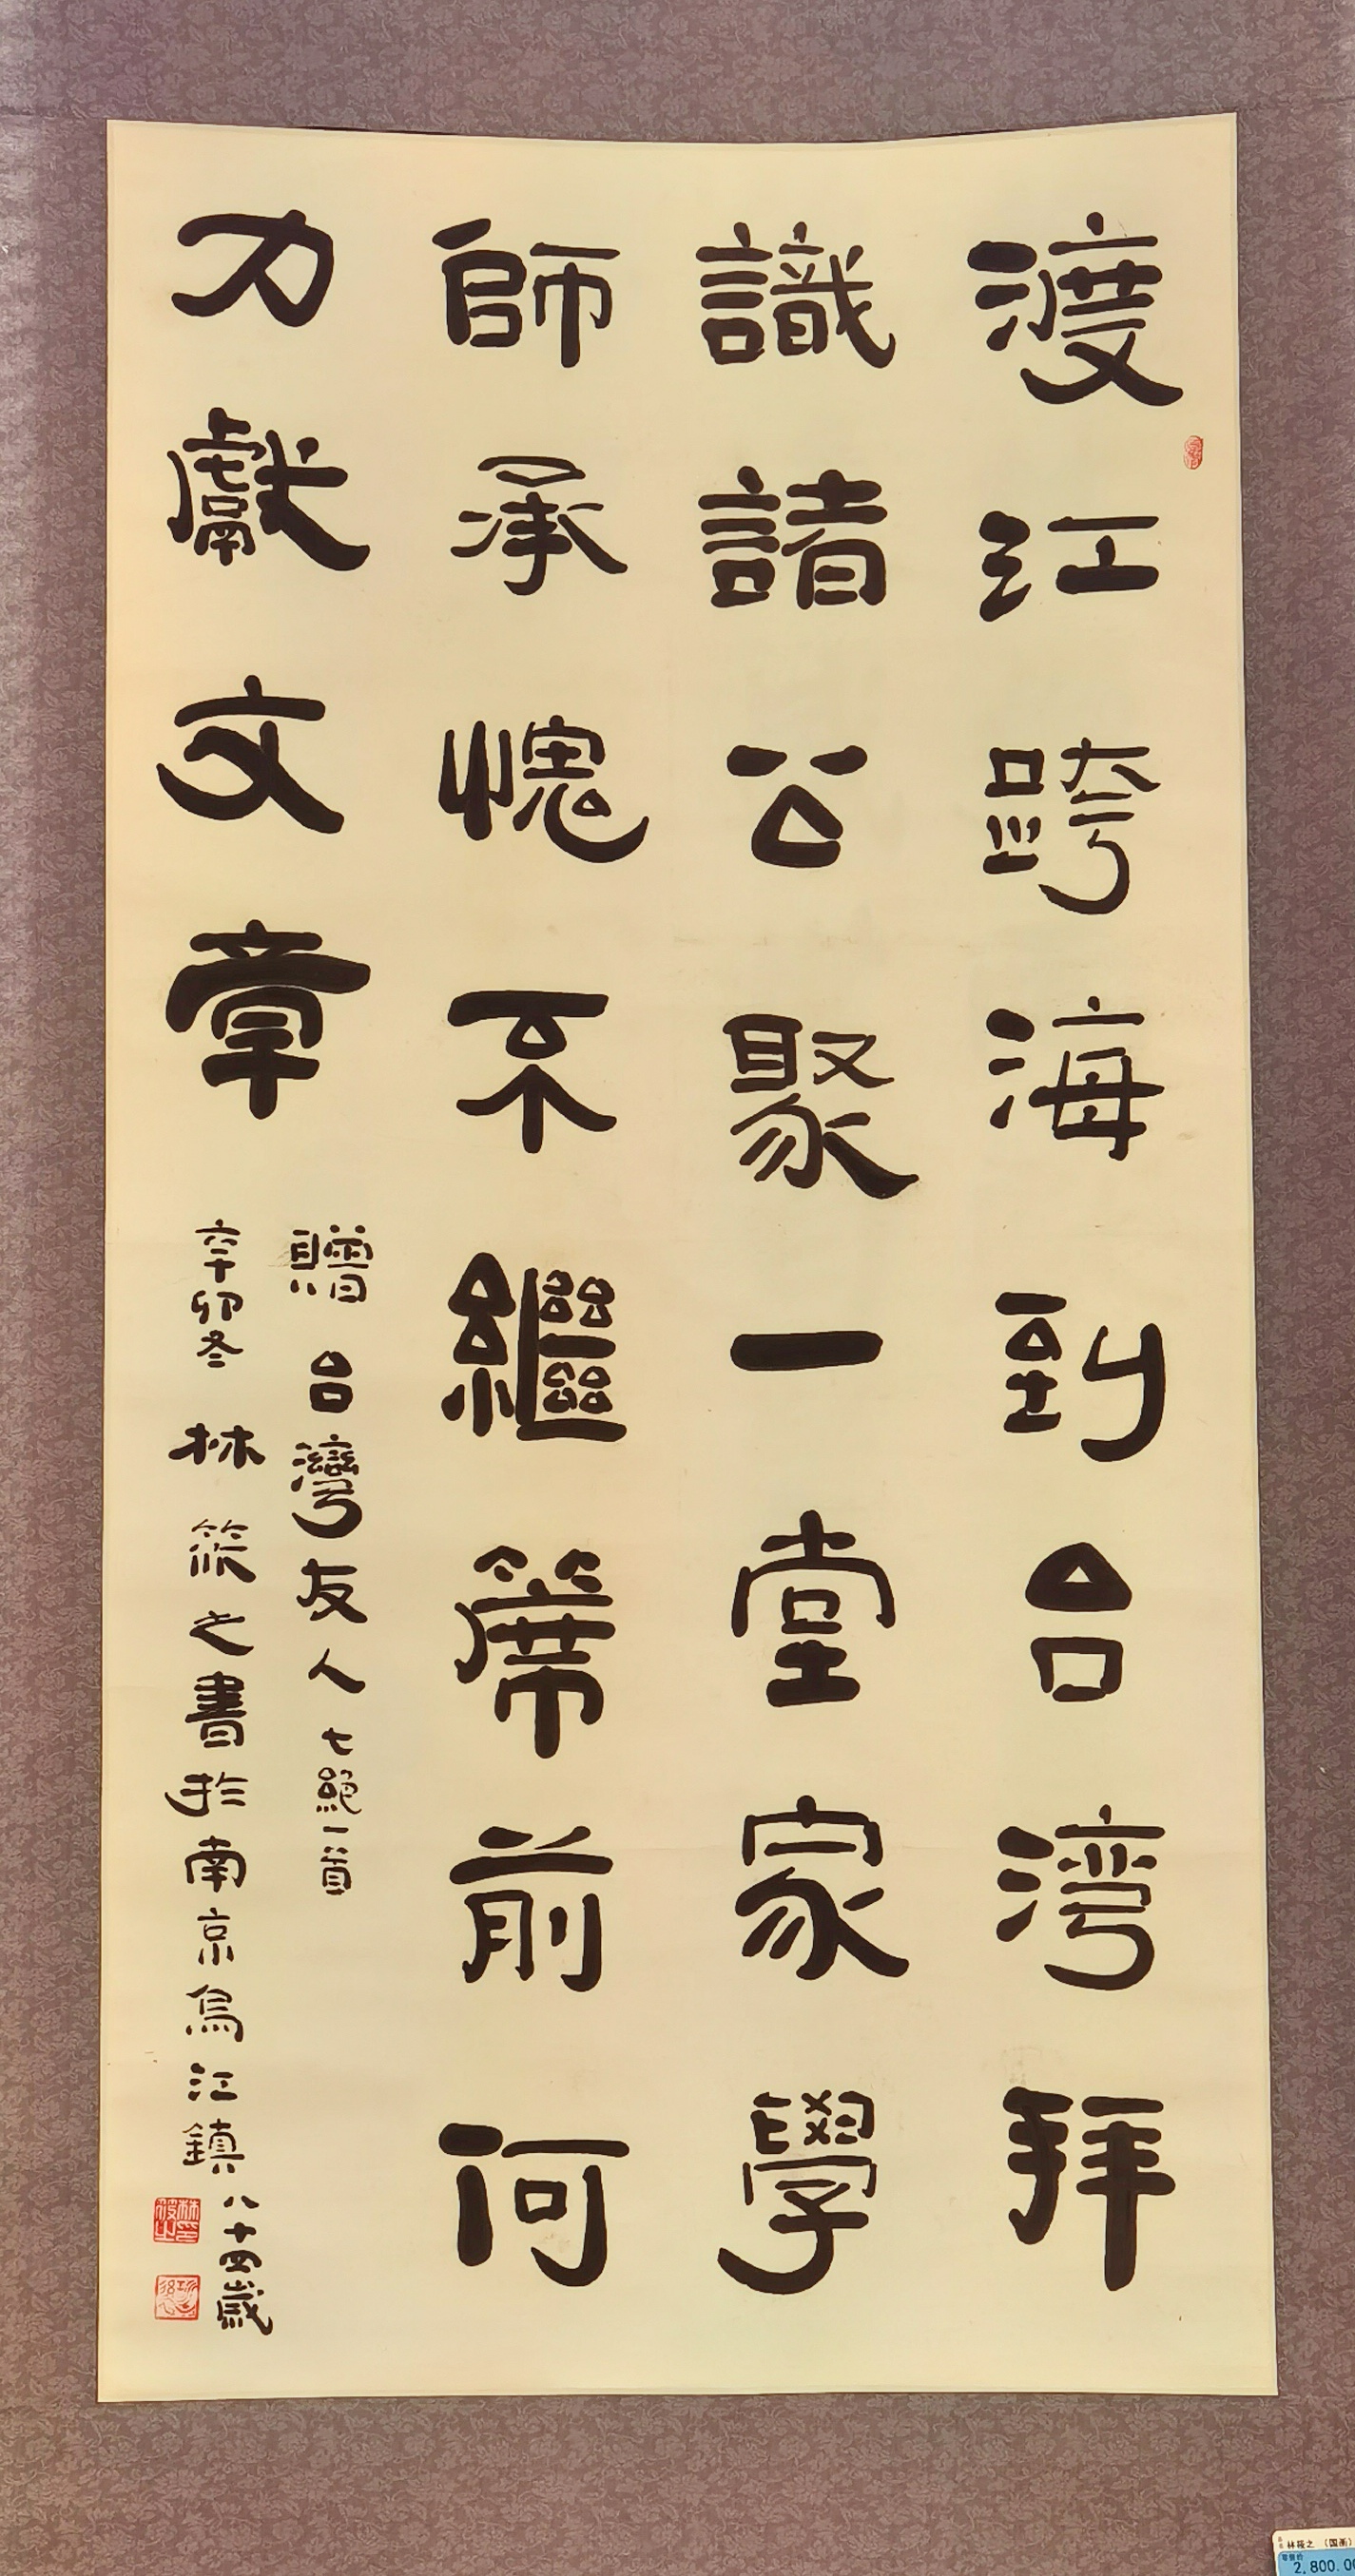 渡江跨海到台湾拜
識諸公聚一堂家學
師承愧不繼席前何
力獻文章
贈台灣友人七絕一首
辛卯冬林筱之書於南京烏江鎮
八十四歲
林筱之（国画）
2,800.00